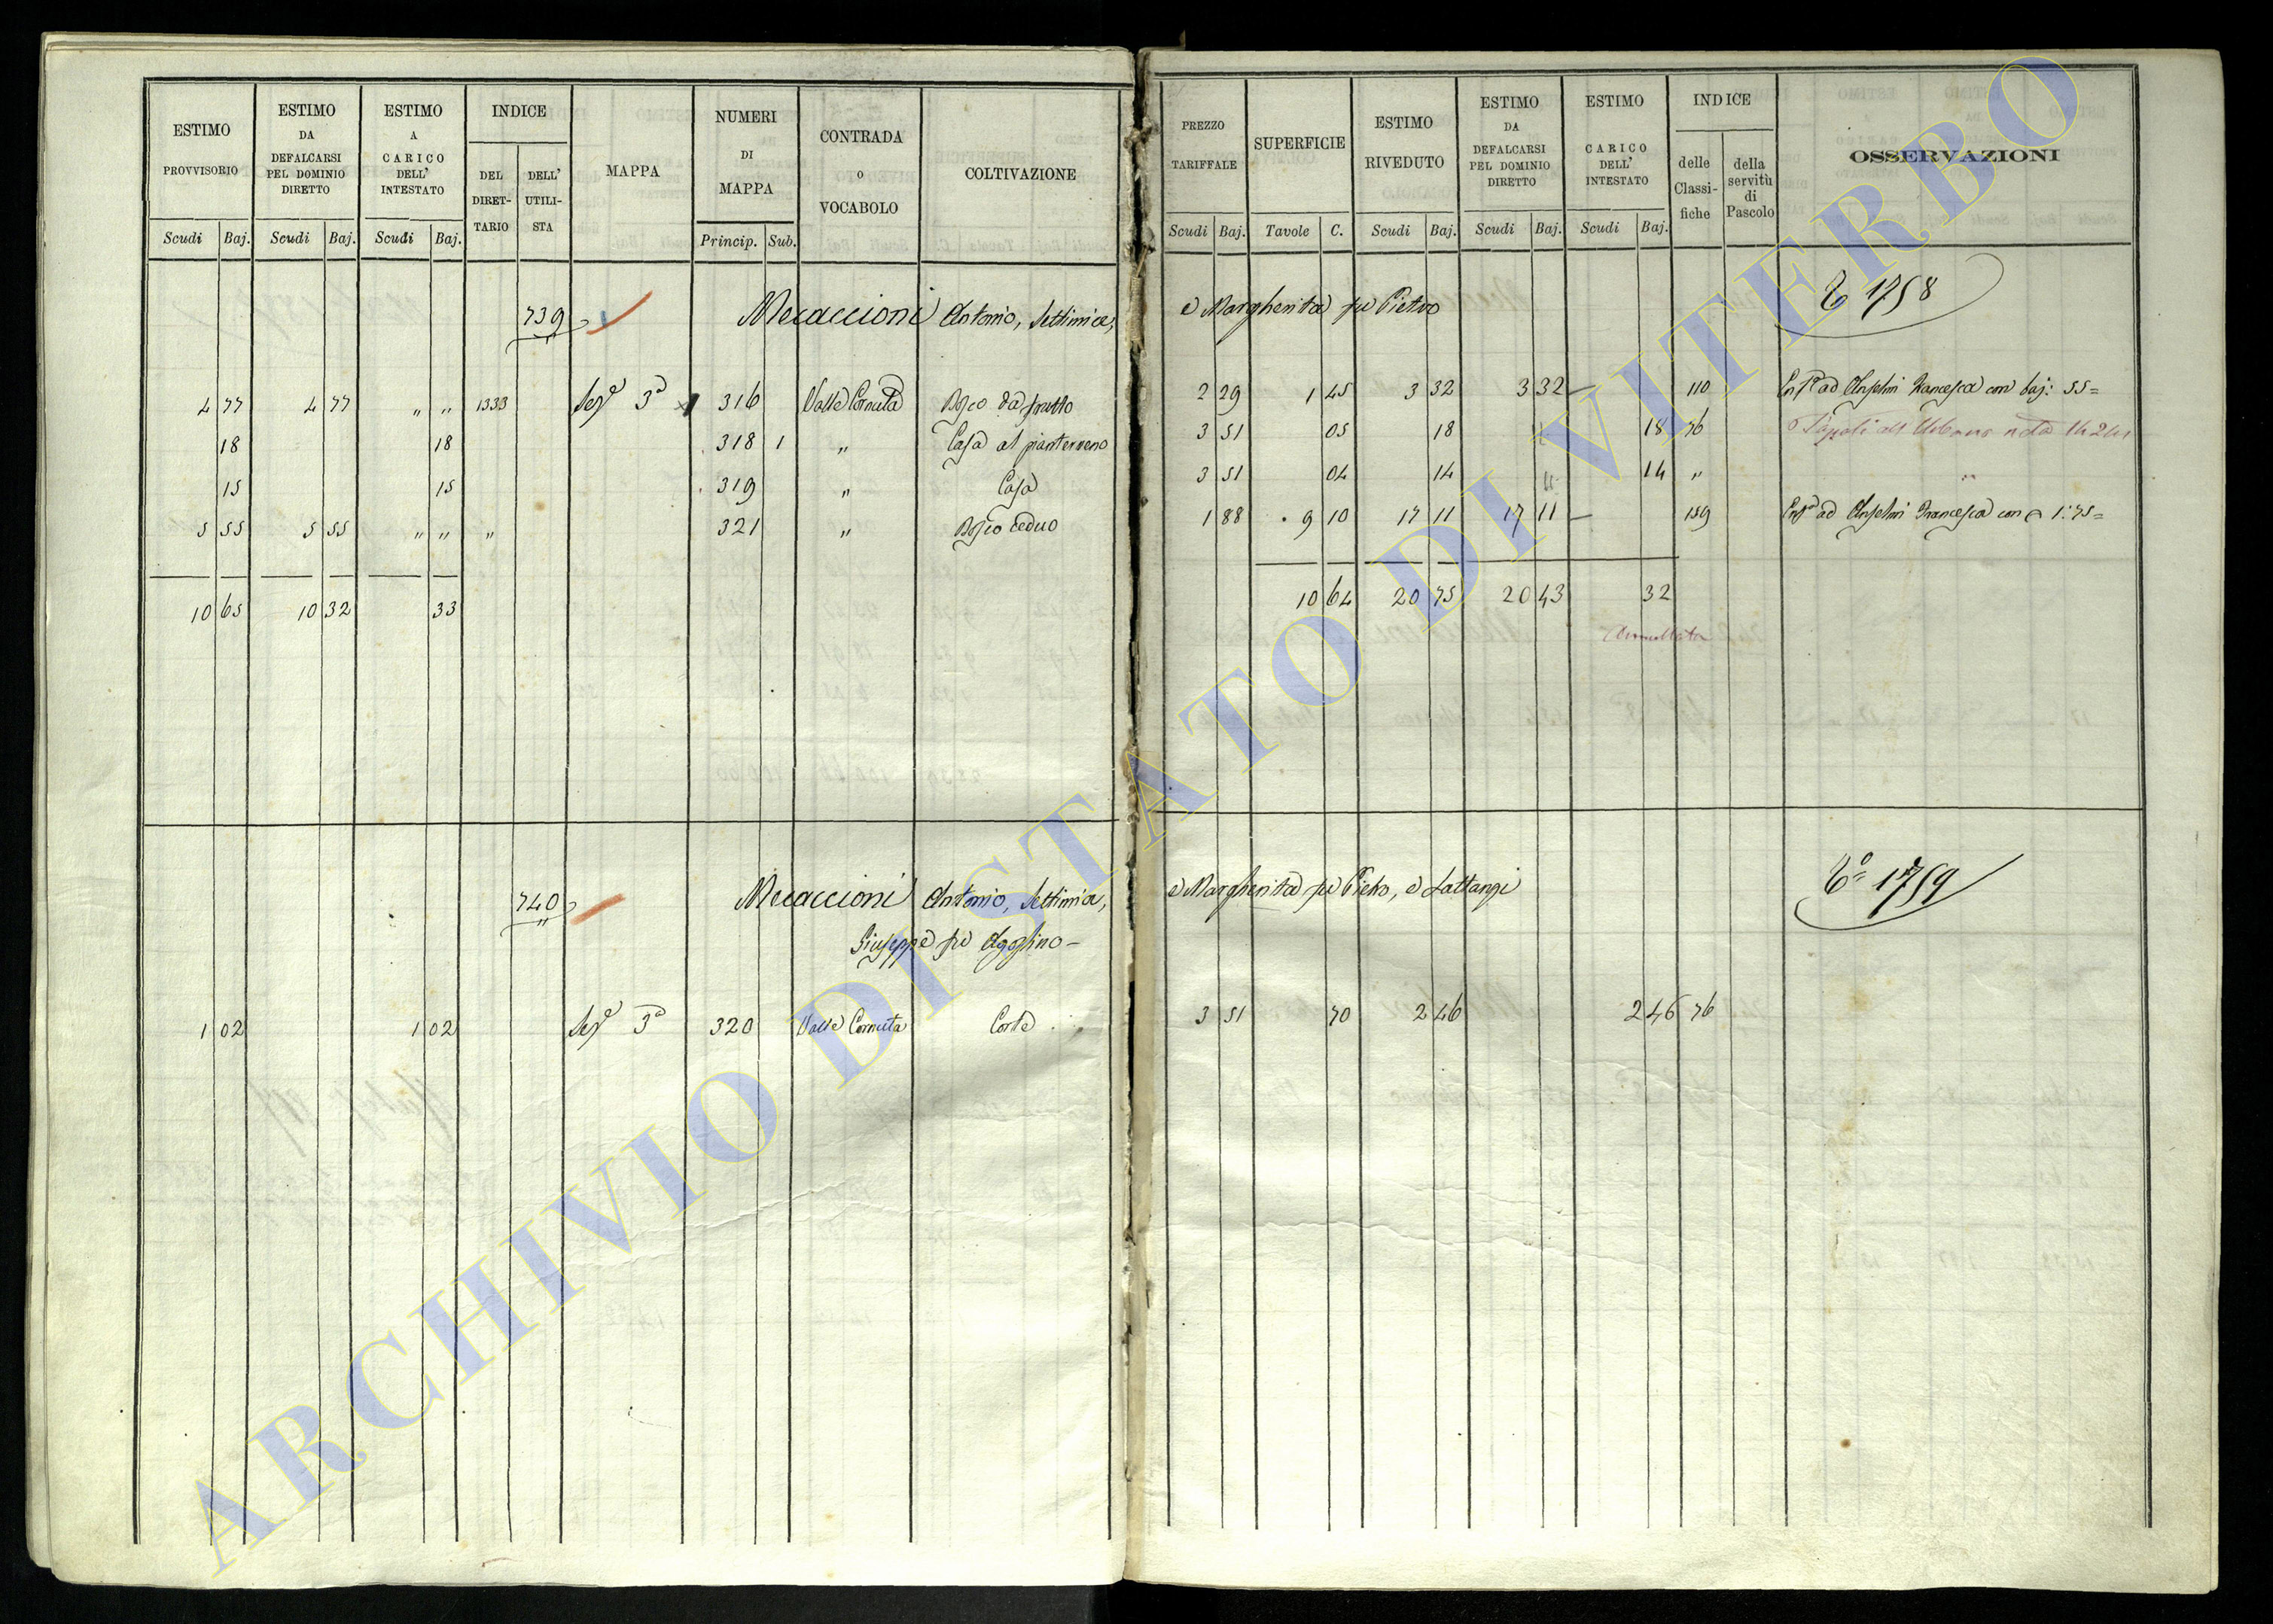 ESTIMO PROVVISORIO
Scudi Baj.
ESTIMO DA DEFALCARSI PEL DOMINIO DIRETTO
Scudi Baj.
ESTIMO A CARICO DELL' INTESTATO
Scudi Baj.
INDICE
DEL DIRET-TARIO
DELL' UTILI-STA
MAPPA
NUMERI DI MAPPA
Princip. Sub.
CONTRADA O VOCABOLO
COLTIVAZIONE
PREZZO TARIFFALE
Scudi Baj.
SUPERFICIE
Tavole C.
ESTIMO RIVEDUTO
Scudi Baj.
ESTIMO DA DEFALCARSI PEL DOMINIO DIRETTO
Scudi Baj.
ESTIMO A CARICO DELL' INTESTATO
Scudi Baj.
INDICE
delle Classi-fiche
della servitù di Pascolo
OSSERVAZIONI
739 Mecaccioni Antonio, Settimia, e Margherita fu Pietro 1758
4 77 4 77 " " 1333 Sez.e 3a 316 Valle Cornuta Bosco da frutto 2 29 1 45 3 32 3 32 – 110 ad Anselmi Francesca con baj: 55=
18 18 318 1 " Casa al pianterreno 3 51 05 18 " 18 76
15 15 319 " Casa 3 51 04 14 " 14 " "
5 55 5 55 " " " 321 " Bosco ceduo 1 88 9 10 17 11 17 11 – 159 ad Anselmi Francesca con 1:75=
10 65 10 32 33 10 64 20 75 20 43 32
Annullata
740 Mecaccioni Antonio, Settimia, e Margherita fu Pietro, e Lattanzi 1759
Giuseppe fu Agostino –
1 02 1 02 Sez.e 3a 320 Valle Cornuta Corte 3 51 70 2 46 2 46 76
ARCHIVIO DI STATO DI VITERBO